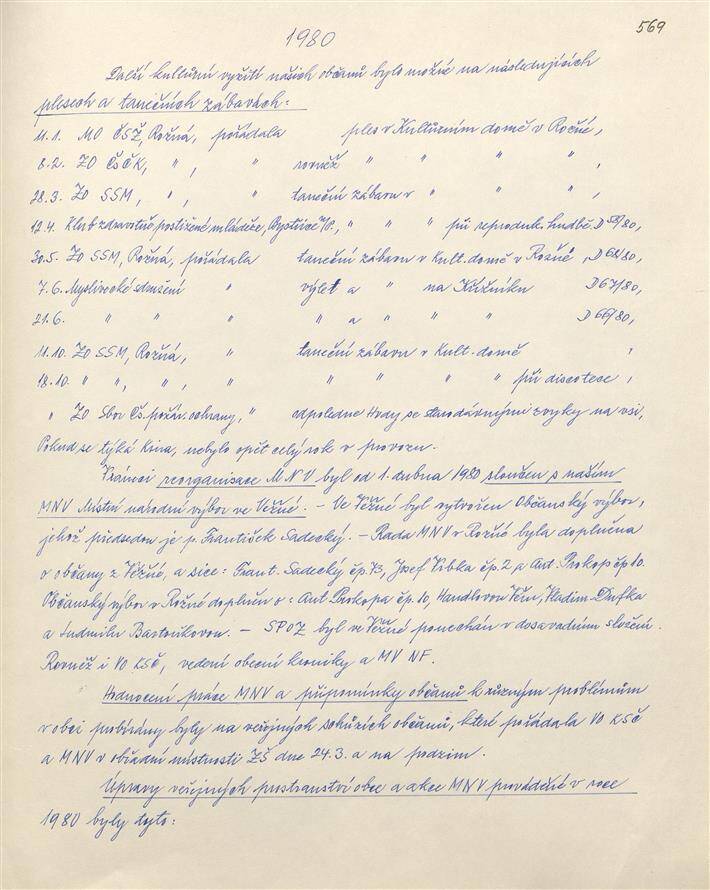 569
1980
Další kulturní vyžití našich občanů bylo možné na následujících
plesech a tanečních zábavách:
11.1. MO ČSŽ, Rožná, pořádala ples v Kulturním domě v Rožné,
8.2. ZO ČSČK, " , " rovněž " " " ,
28.3. ZO SSM, " , " taneční zábavu v " " " ,
12.4. Klub zdravotně postižené mládeže, Bystřice n/P., " " " při reproduk. hudbě. D 58/80,
30.5. ZO SSM, Rožná, pořádala taneční zábavu v Kult. domě v Rožné , D 62/80,
7.6. Myslivecké sdružení " výlet a " na Křížníku D 67/80,
21.6. " " " " a " " " D 66/80,
11.10. ZO SSM, Rožná, " taneční zábavu v Kult. domě ,
18.10. " " , " , " " " " " při discotece ,
" ZO Sbor Čs. požár. ochrany, " odpoledne Hody se starodávnými zvyky na vsi,
Pokud se týká Kina, nebylo opět celý rok v provozu.
V rámci reorganisace MNV byl od 1. dubna 1980 sloučen s naším
MNV Místní národní výbor ve Věžné. – Ve Věžné byl vytvořen Občanský výbor,
jehož předsedou je p. František Sadecký. – Rada MNV v Rožné byla doplněna
o občany z Věžné, a sice: Frant. Sadecký čp. 43, Josef Vrbka čp. 2 a Ant. Prokop čp 10.
Občanský výbor v Rožné doplněn o: Ant. Prokopa čp. 10, Handlovou Věru, Vladim. Dufka
a Ludmilu Bartoňkovou. – SPOZ byl ve Věžné ponechán v dosavadním složení.
Rovněž i VO KSČ, vedení obecní kroniky a MV NF.
Hodnocení práce MNV a připomínky občanů k různým problémům
v obci probírány byly na veřejných schůzích občanů, které pořádala VO KSČ
a MNV v obřadní místnosti ZŠ dne 24.3. a na podzim.
Úpravy veřejných prostranství obce a akce MNV prováděné v roce
1980 byly tyto: